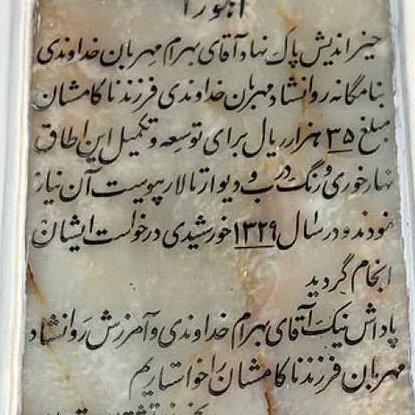 اهورا
خیراندیش پاک نهاد آقای بهرام مهربان خداوندی
بنامگانه روانشاد مهربان خداوندی فرزند ناکامشان
مبلغ ۳۵ هزار ریال برای توسعه و تکمیل این اطاق
نهارخوری و رنگ در ب و دیوار تالار پیوست آن نیاز
نمودند و در سال ۱۳۲۹ خورشیدی درخواست ایشان
انجام گردید
پاداش نیک آقای بهرام خداوندی و آمرزش روانشاد
مهربان فرزند ناکامشان را خواستاریم